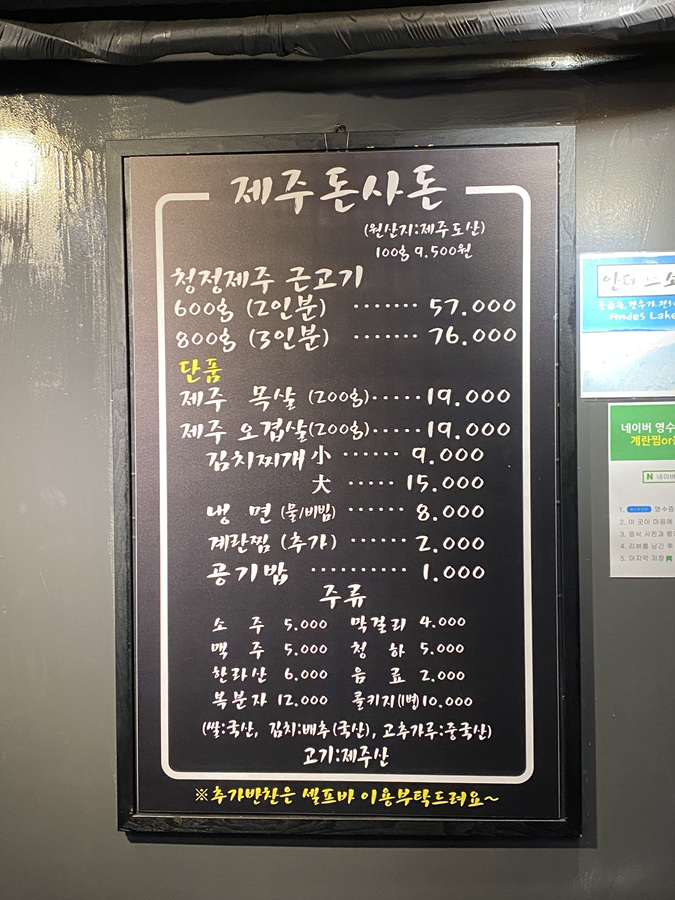 제주돈사돈
(원산지:제주도산)
100g 9.500원
청정제주 근고기
600g (2인분) ······· 57.000
800g (3인분) ······· 76.000
단품
제주 목살 (200g)·····19.000
제주 오겹살(200g)·····19.000
김치찌개 小 ······ 9.000
大 ····· 15.000
냉 면 (물/비빔) ······ 8.000
계란찜 (추가) ······ 2.000
공기밥 ·········· 1.000
주류
소 주 5.000 막걸리 4.000
맥 주 5.000 청 하 5.000
한라산 6.000 음 료 2.000
복분자 12.000 콜키지(1병)10.000
(쌀:국산, 김치:배추(국산), 고추가루:중국산)
고기:제주산
※추가반찬은 셀프바 이용부탁드려요~
Andes Lake
네이버 영수
계란찜or음
N 네이버
1. 영수증
2. 이 곳이 마음에
3. 음식 사진과 함
4. 리뷰를 남긴 후
5. 마지막 저장